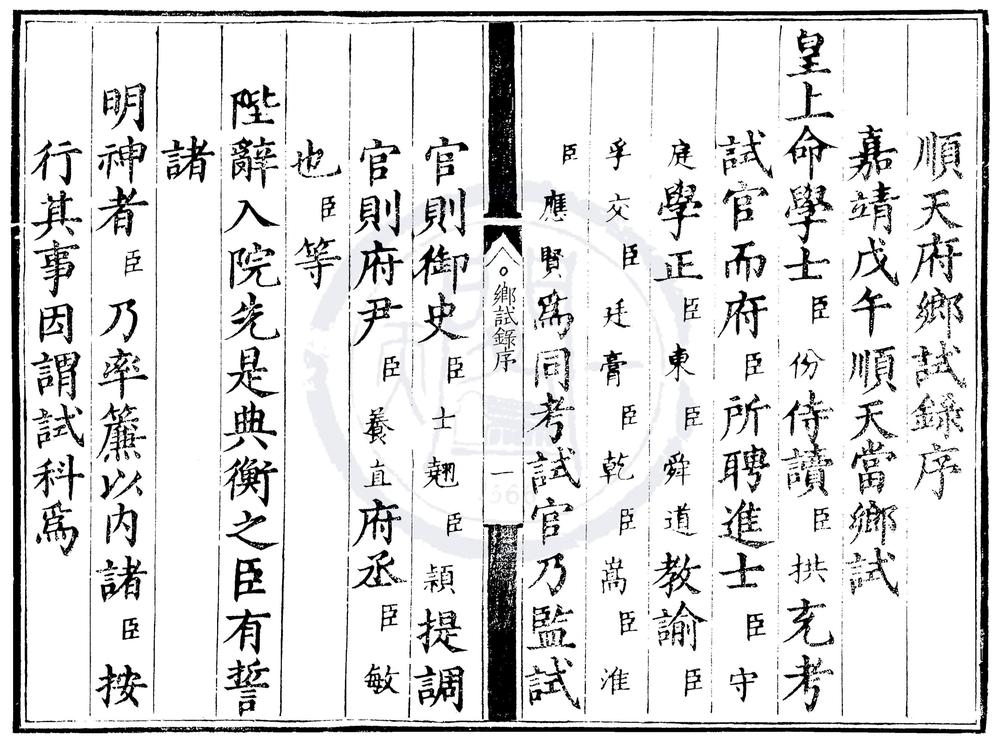 順天府鄉試錄序
嘉靖戊午順天當鄉試
皇上命學士臣份侍讀臣拱充考
試官而府臣所聘進士臣守
庭學正臣東臣舜道教諭臣
孚交臣廷膏臣乾臣嵩臣淮
臣應賢爲同考試官乃監試
鄉試錄序
一
官則御史臣士翹臣潁提調
官則府尹臣養直府丞臣敏
也臣等
陛辭入院先是典衡之臣有誓
諸
明神者臣乃率簾以內諸臣按
行其事因謂試科爲